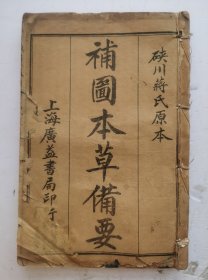 硤川蔣氏原本
補圖本草備要
上海廣益書局印于